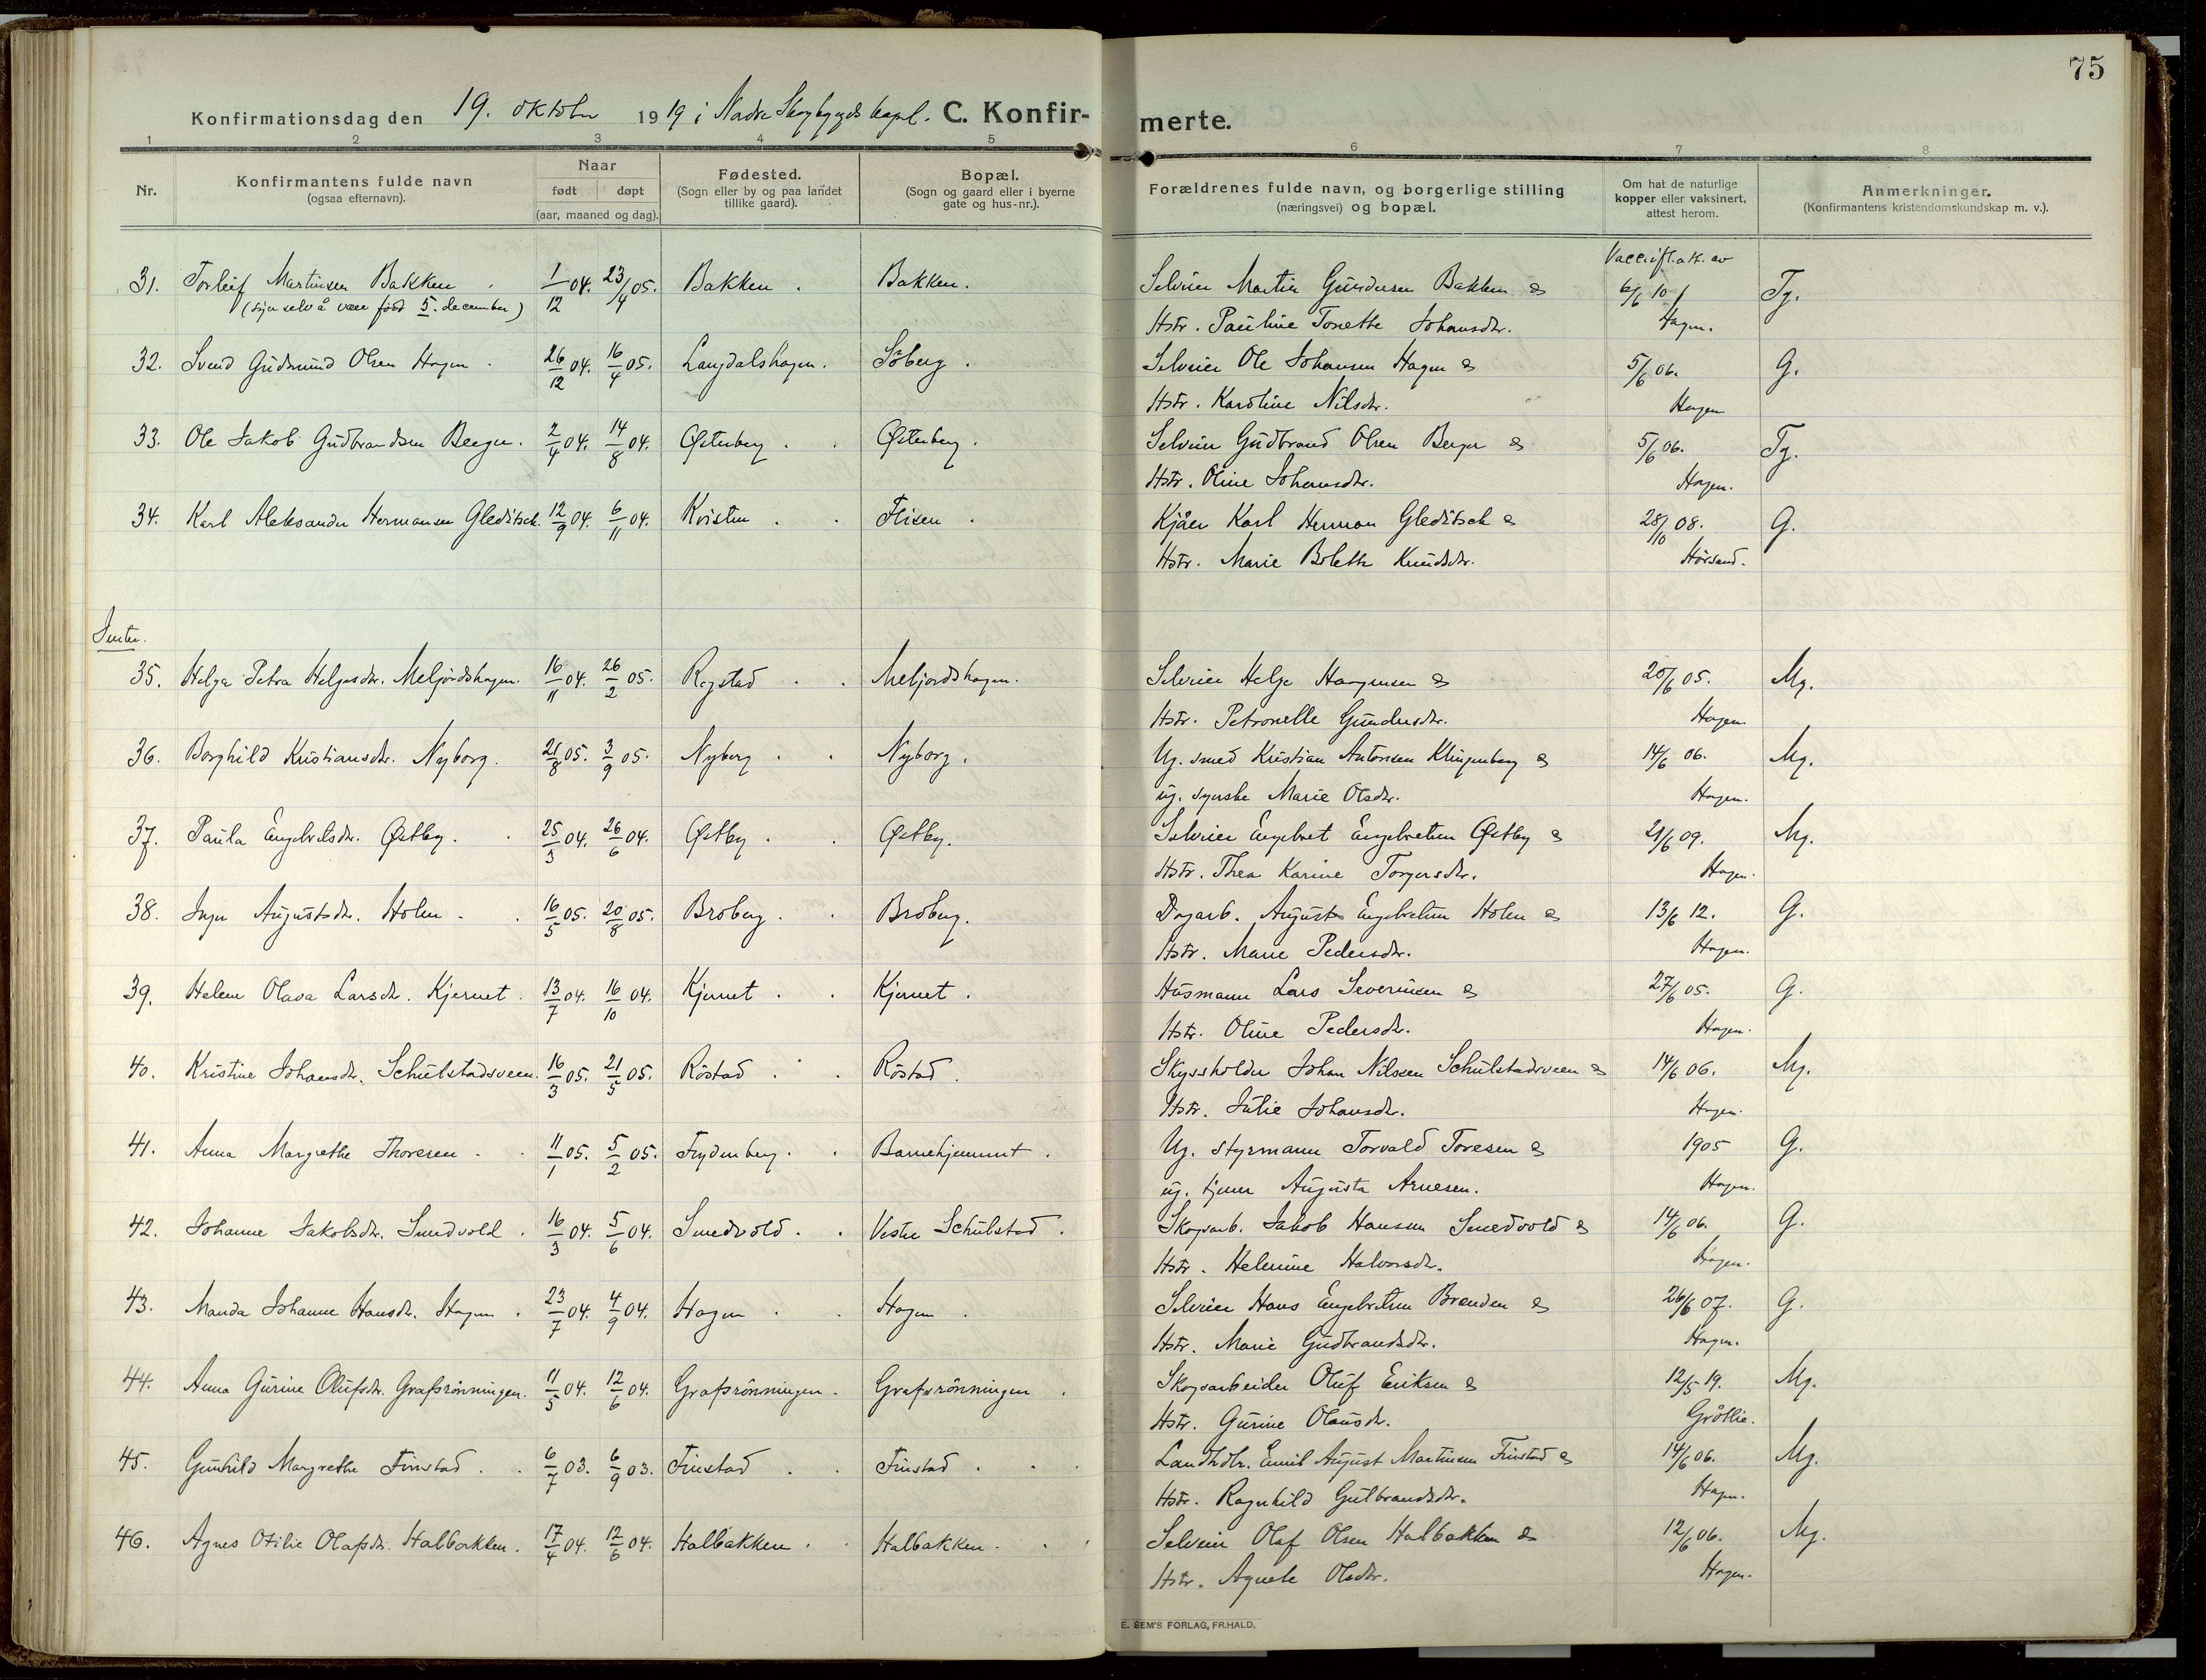 75
Konfirmationsdag den 19. oktober 1919 i Nadre Skogbygds kapel. C. Konfir-merte.
1 2 3 4 5 6 7 8
Nr. Konfirmantens fulde navn (ogsaa efternavn). Naar født døpt (aar, maaned og dag). Fødested. (Sogn eller by og paa landet tillike gaard). Bopæl. (Sogn og gaard eller i byerne gate og hus-nr.). Forældrenes fulde navn, og borgerlige stilling (næringsvei) og bopæl. Om hat de naturlige kopper eller vaksinert, attest herom. Anmerkninger. (Konfirmantens kristendomskundskap m. v.).
Vaccift. att. av
31. Torleif Martinsen Bakken 1/12 04. 23/4 05. Bakken. Bakken. Selveier Martin Gundersen Bakken og 6/6 10 Tg.
(sier selv å være född 5. december) Hstr. Pauline Tonette Johansdtr. Hagen.
32. Svend Gudmund Olsen Hagen. 26/12 04. 16/4 05. Langdalshagen. Söberg. Selveier Ole Johansen Hagen og 5/6 06. G.
Hstr. Karoline Nilsdtr. Hagen
33. Ole Jakob Gudbrandsen Berger. 2/4 04. 14/8 04. Østerberg. Østerberg. Selveier Gudbrand Olsen Berger og 5/6 06. Tg.
Hstr. Oline Johansdtr. Hagen.
34. Karl Aleksander Hermansen Gleditsch. 12/9 04. 6/11 04. Kvisten. Flisen. Kjäer Karl Herman Gleditsch og 28/10 08. G.
Hstr. Marie Bolette Knudsdtr. Hörsand.
Jenter.
35. Helga Petra Helgesdtr. Meljordshagen. 16/11 04. 26/2 05. Rogstad. Meljordshagen. Selveier Helge Haagensen og 20/6 05. Mg.
Hstr. Petronelle Gundersdtr. Hagen
36. Borghild Kristiansdtr. Nyborg. 21/8 05. 3/9 05. Nyberg. Nyborg. Ug. smed Kristian Antonsen Klingenberg og 14/6 06. Mg.
ug. syerske Marie Olsdtr. Hagen.
37. Paula Engebretsdtr. Østby. 25/3 04. 26/6 04. Østby. Østby. Selveier Engebret Engebretsen Østby og 21/6 09. Mg.
Hstr. Thea Karine Torgersdtr. Hagen.
38. Inger Augustsdtr. Holen. 16/5 05. 20/8 05. Broberg. Broberg. Dagarb. August Engebretsen Holen og 13/6 12. G.
Hstr. Marie Pedersdtr. Hagen.
39. Helene Olava Larsdtr. Kjernet. 13/7 04. 16/10 04. Kjernet. Kjernet. Husmann Lars Severinsen og 27/6 05. G.
Hstr. Oline Pedersdtr. Hagen.
40. Kristine Johansdtr. Schulstadsveen. 16/3 05. 21/5 05. Röstad. Röstad. Skyssholder Johan Nilsen Schulstadsveen og 14/6 06. Mg.
Hstr. Julie Johansdtr. Hagen.
41. Anna Margrethe Thoresen. 11/1 05. 5/2 05. Frydenberg. Barnehjemmet. Ug. styrmann Torvald Toresen og 1905 G.
ug. tjener Augusta Arnesen. Hagen.
42. Johanne Jakobsdtr. Smedvold. 16/3 04. 5/6 04. Smedvold. Vestre Schulstad. Skogsarb. Jakob Hansen Smedvold og 14/6 06. G.
Hstr. Helmine Halvorsdtr. Hagen.
43. Manda Johanne Hansdtr. Hagen. 23/7 04. 4/9 04. Hagen. Hagen. Selveier Hans Engebretsen Brenden og 26/6 07. G.
Hstr. Marie Gudbrandsdtr. Hagen.
44. Anna Gurine Olufsdtr. Grafsrönningen. 11/5 04. 12/6 04. Grafsrönningen. Grafsrönningen. Skogsarbeider Oluf Eriksen og 12/5 19. Mg.
Hstr. Gurine Olausdtr. Gröttie.
45. Gunhild Margrethe Finstad. 6/7 03. 6/9 03. Finstad. Finstad. Landhdlr. Emil August Martinsen Finstad og 14/6 06. Mg.
Hstr. Ragnhild Gulbrandsdtr. Hagen.
46. Agnes Otilie Olafsdtr. Halbakken. 17/4 04. 12/6 04. Halbakken. Halbakken. Selveier Olaf Olsen Halbakken og 12/6 06. Mg.
Hstr. Agnete Olsdtr. Hagen.
E. SEM'S FORLAG, FR.HALD.